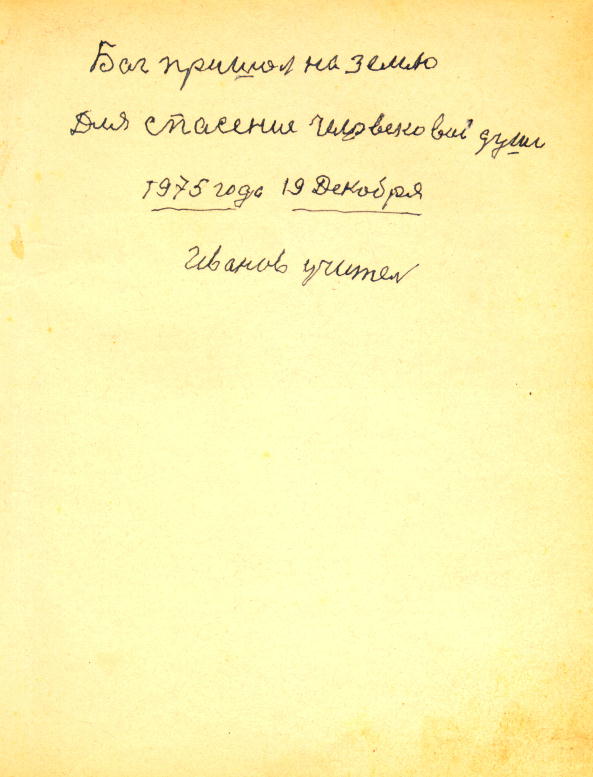 Бог пришол на землю
Для спасение человековой души
1975 года 19 Декобря
Иванов учител